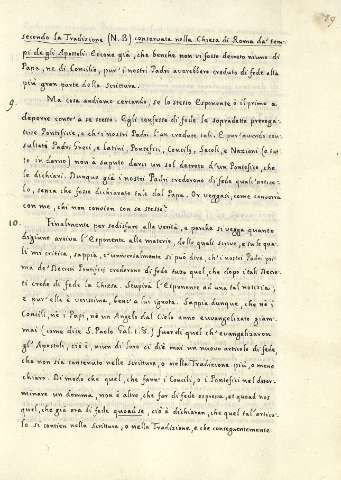 secondo la Tradizione (N.B) conservata nella Chiesa di Roma da' tem-
pi degli Apostoli. Eccone già, che benchè non vi fosse decreto niuno di
Papa, nè di Concilio, pur' i nostri Padri avrebbero creduto di fede alla
più gran parte della Scrittura.
9. Ma cosa andiamo cercando, se lo stesso Esponente è il primo a
deporre contr'a se stesso? Egli confessa di fede le sopradette preroga-
tive Pontificie, e ch'i nostri Padri l'an credute tali. E pur'avendo con-
sultati Padri Greci, e Latini, Pontefici, Concilj, Secoli, e Nazioni (e tut-
to in darno) non à saputo darci un sol decreto d'un Pontefice, che
le dichiari. Dunque già i nostri Padri crederono di fede quell'artico-
lo, senza che fosse dichiarato tale dal Papa. Or veggasi, come convenga
con me, chi non convien con se stesso?
10. Finalmente per sodisfare alla verità, e perchè si vegga quanto
digiuno arriva l'Esponente alle materie, delle quali scrive, e su le qua-
li mi critica, sappia, ch'universalmente si può dire, ch'i nostri Padri pri-
ma de' Decreti Pontificj credevano di fede tutto quel, che dopo tali Decre-
ti crede di fede la Chiesa. Stupirà l'Esponente ad una tal notizia;
e pur'ella è verissima, benc' a lui ignota. Sappia dunque, che nè i
Concilj, nè i Papi, nè un Angelo dal Cielo anno evangelizato giam-
mai (come dice S. Paolo Gal. 1. 8.) fuor di quel ch'evangelizarono
gl'Apostoli, cioè niun di loro ci diè mai un nuovo articolo di fede,
che non sia contenuto nella scrittura, o nella Tradizione più, o meno
chiaro. Di modo che quel, che fanno i Concilj, o i Pontefici nel deter-
minare un domma, non è altro, che far di fede espressa, et quoad nos
quel, che già era di fede quoad se, cioè dichiaran, che quel tal'artico-
lo si contien nella scrittura, o nella Tradizione, e che conseguentemente